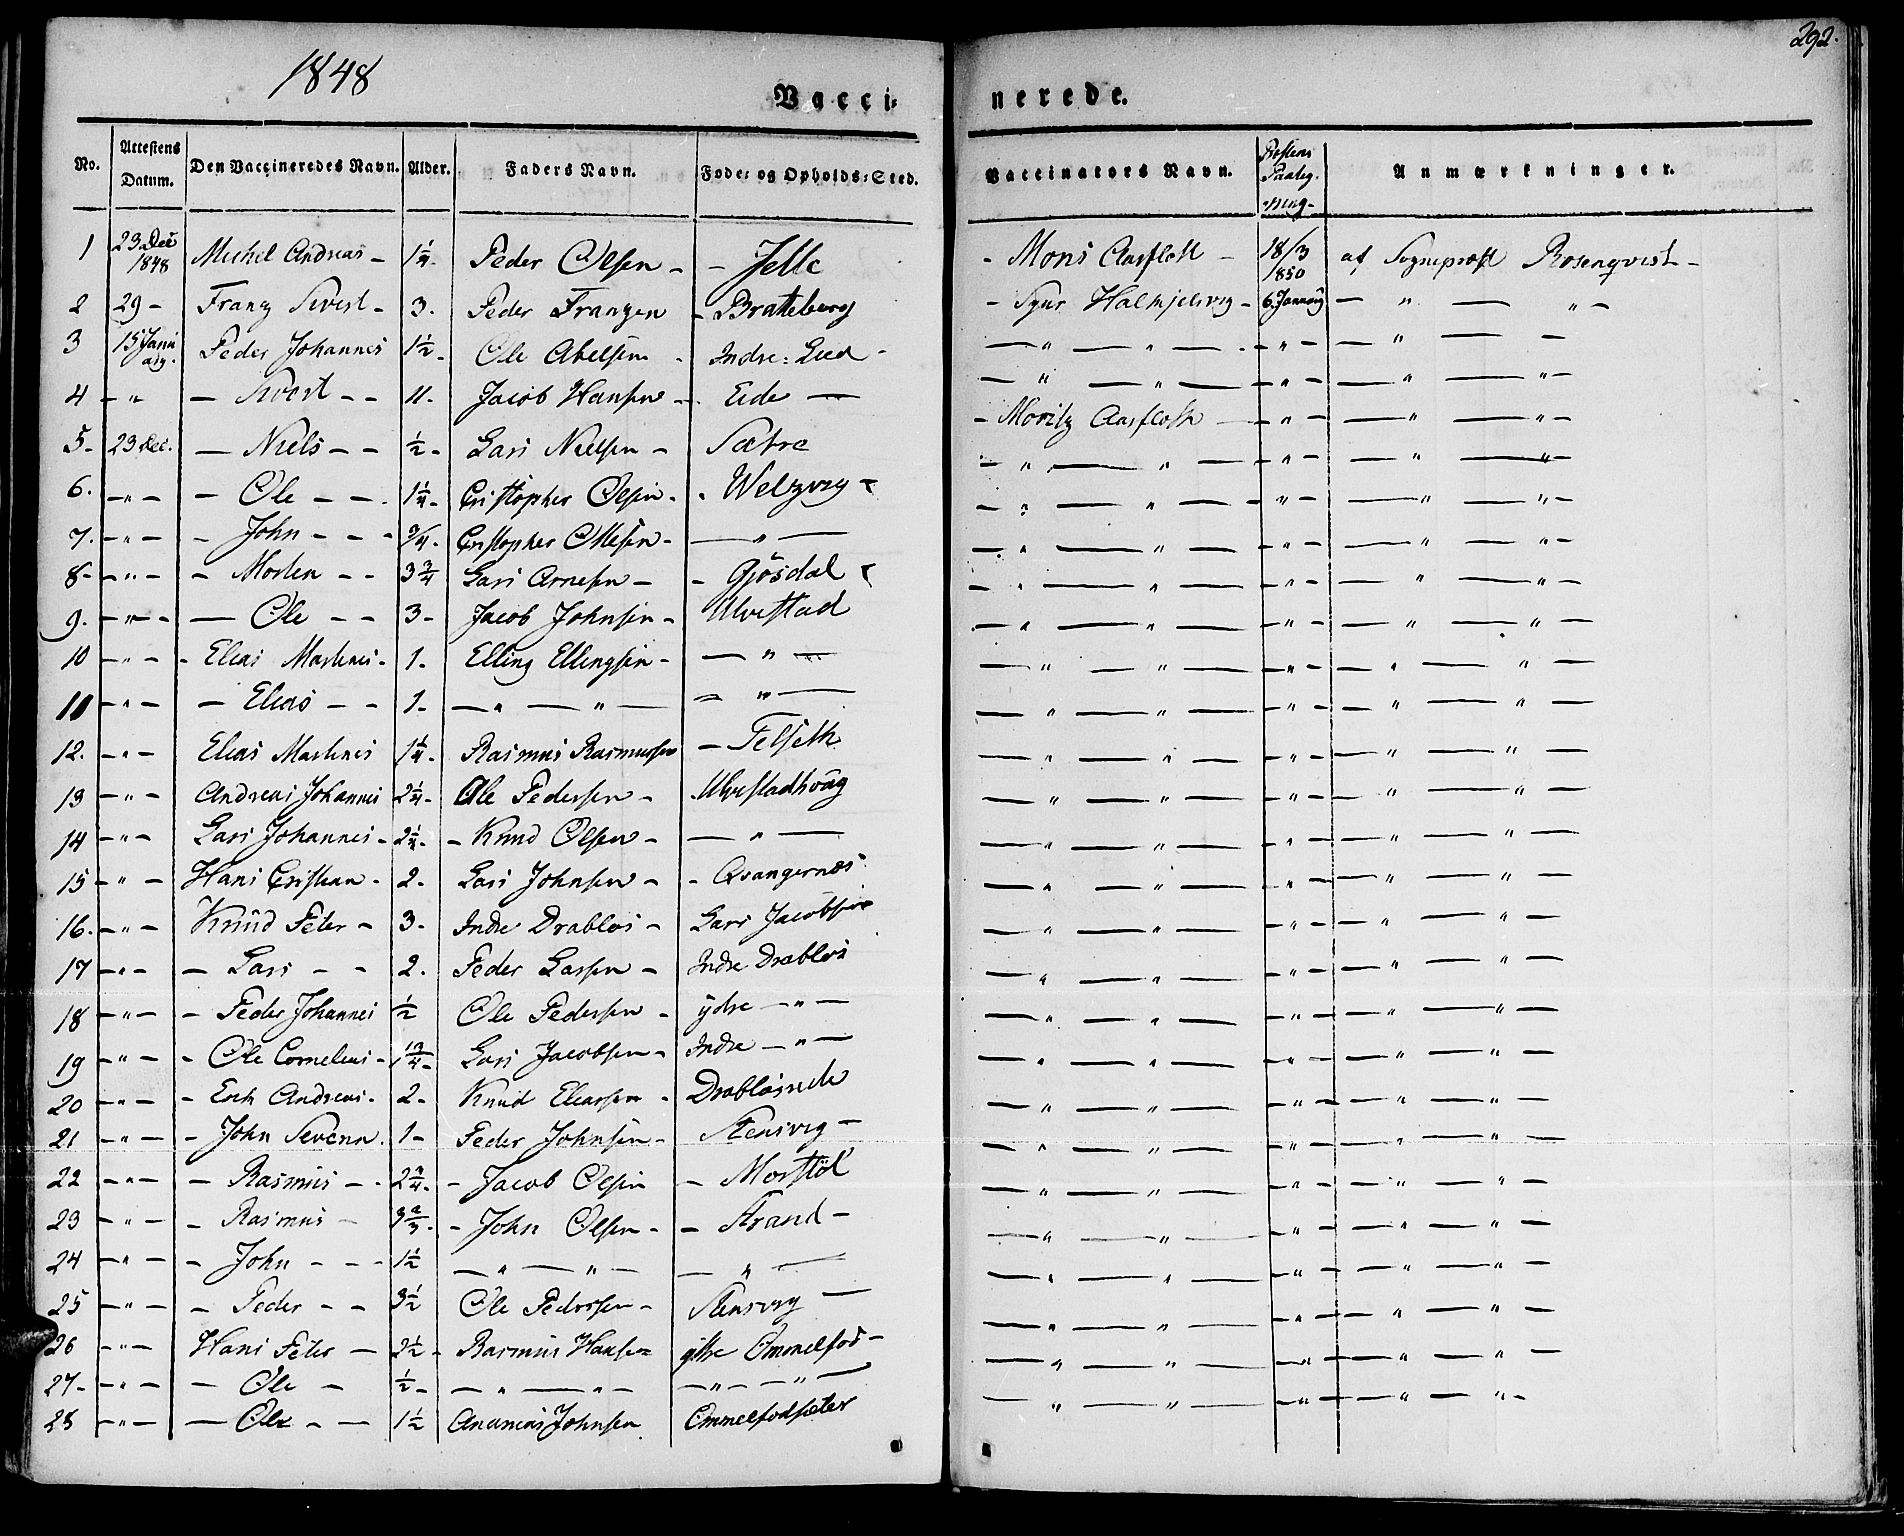 1848
292.
Vacci-
nerede.
No. Attestens Datum. Den Vaccineredes Navn. Alder. Faders Navn. Føde- og Opholds-Sted. Vaccinators Navn. Anmærkninger.
1 23 Dec 1848 Michel Andreas - 1¼ - Peder Olsen - - Jelle - Mons Aarfloth - 18/3 1850 af Sogneprost Rosenqvist -
2 29 - Franz Sivert - 3. Peder Franzen - Bratteberg 6 - " - " -
3 15 Janu Peder Johannes 1½ - Ole Abelsen - Indre - " - " - - " - - " - -
4 - " - Sivert - - 11 - Jacob Hansen - Eide - - " - " - - " - - " - " -
5 - 23 Dec. - Niels - - ½ - Lars Nielsen - Sætre - Moritz Aarfloth - - " - - " - " -
6. - " - - Ole - - 1¼ - Cristopher Olsen - - " - " - - " - - " - " -
7. - " - - John - - - ¾ - Cristopher Ottesen - - " - - " - " - - " - - " - " -
8 - - " - - Morten - - 3¾ Lars Arnesen - - Gjøsdal - " - " - - " - - " - " -
9. - " - - Ole - - 3 - Jacob Johnsen - Ulvestad - " - " - - " - - " - " -
10 - " - - Elias Martines - 1 - Elling Ellingsen - - " - - " - " - - " - - " - " -
11 - " - - Elias - - 1 - - " - " - - " - - " - " - - " - - " - " -
12. - " - Elias Martines 1¼ - Rasmus Rasmussen - - " - " - - " - - " - " -
13 - " - Andreas Johannes 2¼ - Ole Pedersen - Ulvestadhoug - " - " - - " - - " - " -
14 - " - Lars Johannes - 2¼ - - Knud Olsen - - " - - " - " - - " - - " - " -
15 - " - Hans Cristian - 2 - Lars Johnsen - - Qvangernæs - " - " - - " - - " - " -
16. - " - Knud Peter - 3 - Indre Drabløs - Lars Jacobsen - " - " - - " - - " - " -
17 - " - - Lars - - 2. Peder Larsen - Indre Drabløs - " - " - - " - - " - " -
18 - " - - Peder Johannes ½ Ole Pedersen - ydre - " - - " - " - - " - - " - " -
19 - " - - Ole Cornelius - 1¾ - Lars Jacobsen - Indre - " - - " - " - - " - - " - " -
20 - " - - Erik Andreas - 2 - Knud Eliassen - - " - " - - " - - " - " -
21 - " - - John 1 - Peder Johnsen - Stensvig - - " - " - - " - - " - " -
22 - " - - Rasmus - - 2¾ - - Jacob Olsen - Morstøl - " - " - - " - - " - " -
23 - " - - Rasmus - - John Olsen - - Strand - - " - " - - " - - " - " -
24 - " - - John - - - 1½ - " - " - - " - - " - " - - " - - " - " -
25 - " - - Peder - - 3½ Ole Pedersen - Stensvig - - " - " - - " - - " - " -
26 - " - Hans Peter - 2½ - Rasmus Hansen - " - " - - " - - " - " -
27 - - " - - Ole - ½ - - " - " - - " - - " - - " - " - - " - - " - " -
28 - " - - Ole - - 1½ Ananias Johnsen - " - " - - " - - " - " -